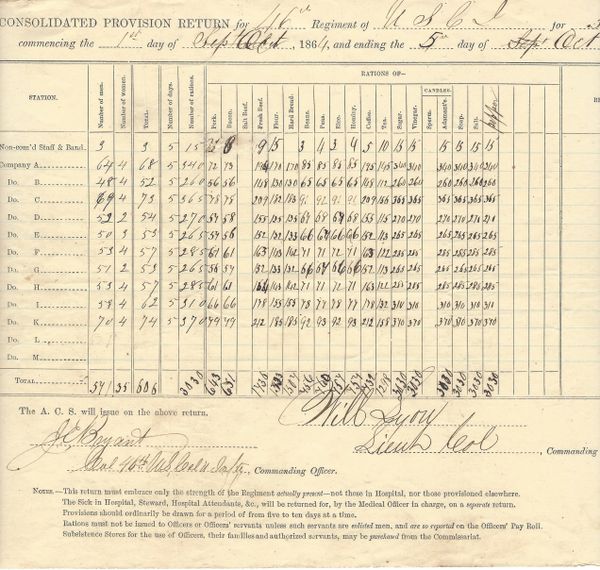 CONSOLIDATED PROVISION RETURN for 46th Regiment of U S C I for 5
commencing the 1st day of Sept Oct 1864, and ending the 5th day of Sept Oct
RATIONS OF—
STATION. Number of men. Number of women. Total. Number of days. Number of rations. Pork. Bacon. Salt Beef. Fresh Beef. Flour. Hard Bread. Beans. Peas. Rice. Hominy. Coffee. Tea. Sugar. Vinegar. CANDLES. Sperm. Adamant'e. Soap. Salt. pepper
Non-com'd Staff & Band. 3 3 5 15 8 15 3 4 4 4 5 10 15 15 15 15 15 15
Company A 64 4 68 5 340 72 73 170 170 85 85 85 85 195 145 340 340 340 340 340 340
Do. B 48 4 52 5 260 56 56 148 130 130 65 65 65 65 148 112 260 260 260 260 260 260
Do. C 69 4 73 5 365 78 78 209 182 183 91 92 91 92 209 156 365 365 365 365 365 365
Do. D 4 54 5 270 58 155 135 135 67 68 67 68 155 115 270 270 270 270 270 270
Do. E 50 3 53 5 265 56 152 132 133 66 67 66 66 152 113 265 265 265 265 265 265
Do. F 53 4 57 5 285 61 61 163 71 72 71 71 163 122 285 285 285 285 285 285
Do. G 51 2 53 5 265 57 152 133 132 66 67 66 66 152 113 265 265 265 265 265 265
Do. H 53 4 57 5 285 61 61 71 71 72 71 163 122 285 285 285 285 285 285
Do. I 58 4 62 5 310 66 66 178 155 155 78 77 78 77 178 132 310 310 310 310 310 310
Do. K 70 4 74 5 370 79 79 212 185 185 92 93 92 93 212 158 370 370 370 370 370 370
Do. L
Do. M
TOTAL 571 35 606 3030 643 651 3030 3030 3030 3030 3030 3030
The A. C. S. will issue on the above return.
Will Lyon
Lieut Col , Commanding
J C Bryant
Col 46th U.S. Cold Infy , Commanding Officer.
NOTES.—This return must embrace only the strength of the Regiment actually present—not those in Hospital, nor those provisioned elsewhere.
The Sick in Hospital, Steward, Hospital Attendants, &c., will be returned for, by the Medical Officer in charge, on a separate return.
Provisions should ordinarily be drawn for a period of from five to ten days at a time.
Rations must not be issued to Officers or Officers' servants unless such servants are enlisted men, and are so reported on the Officers' Pay Roll.
Subsistence Stores for the use of Officers, their families and authorized servants, may be purchased from the Commissariat.